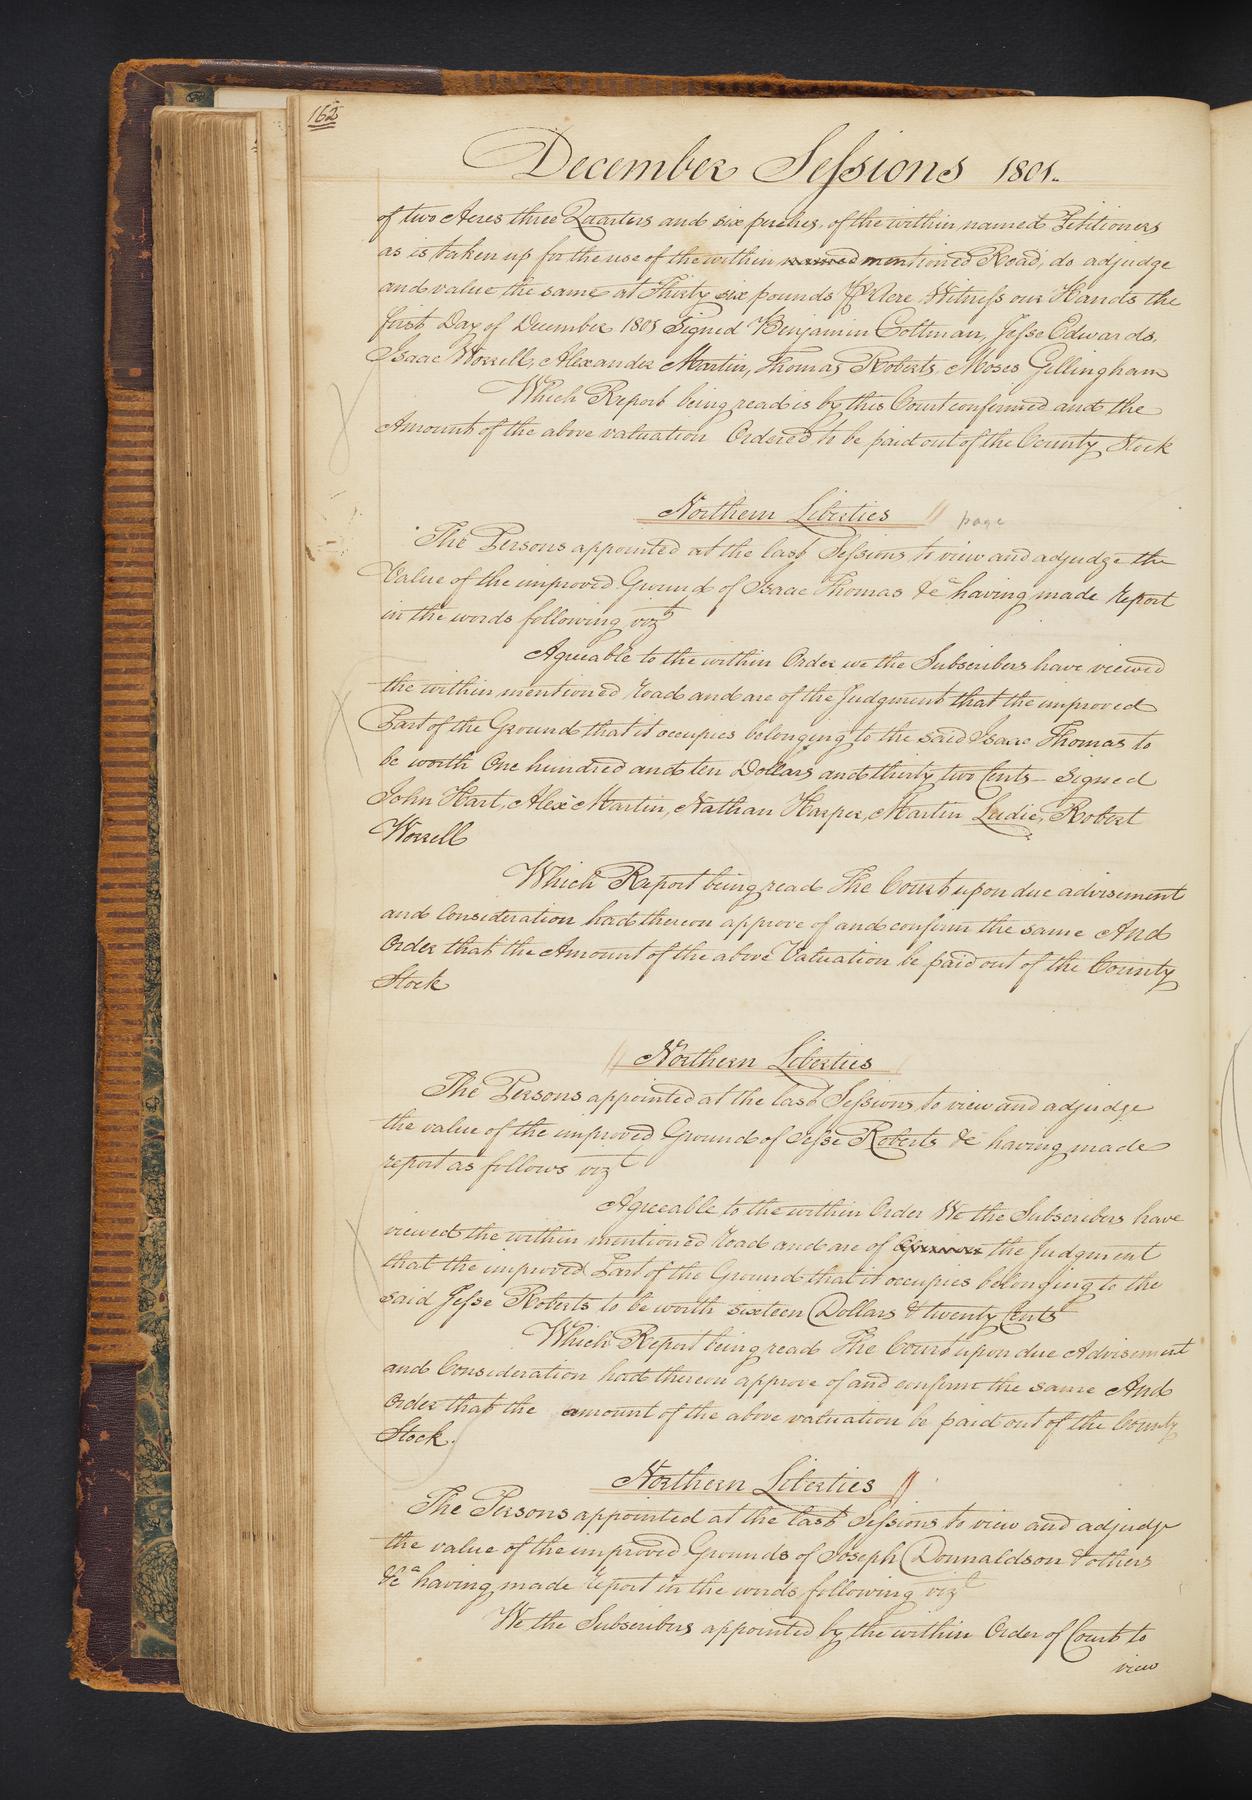 162
December Sessions 1801.
of two Acres three Quarters and six perches, of the within named Petitioners
as is taken up for the use of the within named mentioned Road, do adjudge
and value the same at Thirty six pounds ⅌ Acre Witness our Hands the
first Day of December 1801 Signed Benjamin Cottman, Jesse Edwards,
Isaac Worrell, Alexander Martin, Thomas Roberts, Moses Gillingham
Which Report being read is by this Court confirmed and the
Amount of the above valuation Ordered to be paid out of the County Stock
Northern Liberties // page
The Persons appointed at the last Sessions to view and adjudge the
Value of the improved Ground of Isaac Thomas &c having made report
in the words following vizt
Agreeable to the within Order we the Subscribers have viewed
the within mentioned road and are of the Judgment that the improved
Part of the Ground that it occupies belonging to the said Isaac Thomas to
be worth One hundred and ten Dollars and thirty two Cents - Signed
John Hart, Alexr Martin, Nathan Harper, Martin Ludie, Robert
Worrell
Which Report being read The Court upon due advisement
and Consideration had thereon approve of and confirm the same And
Order that the Amount of the above Valuation be paid out of the County
Stock
// Northern Liberties /
The Persons appointed at the last Sessions to view and adjudge
the value of the improved Ground of Jesse Roberts &c having made
report as follows vizt
Agreeable to the within Order We the Subscribers have
viewed the within mentioned road and are of the Judgment
that the improved Part of the Ground that it occupies belonging to the
said Jesse Roberts to be worth sixteen Dollars & twenty Cents
Which Report being read The Court upon due Advisement
and Consideration had thereon approve of and confirm the same And
Order that the amount of the above valuation be paid out of the County
Stock.
Northern Liberties //
The Persons appointed at the last Sessions to view and adjudge
the value of the improved Grounds of Joseph Donnaldson & others
&ca having made report in the words following vizt
We the Subscribers appointed by the within Order of Court to
view